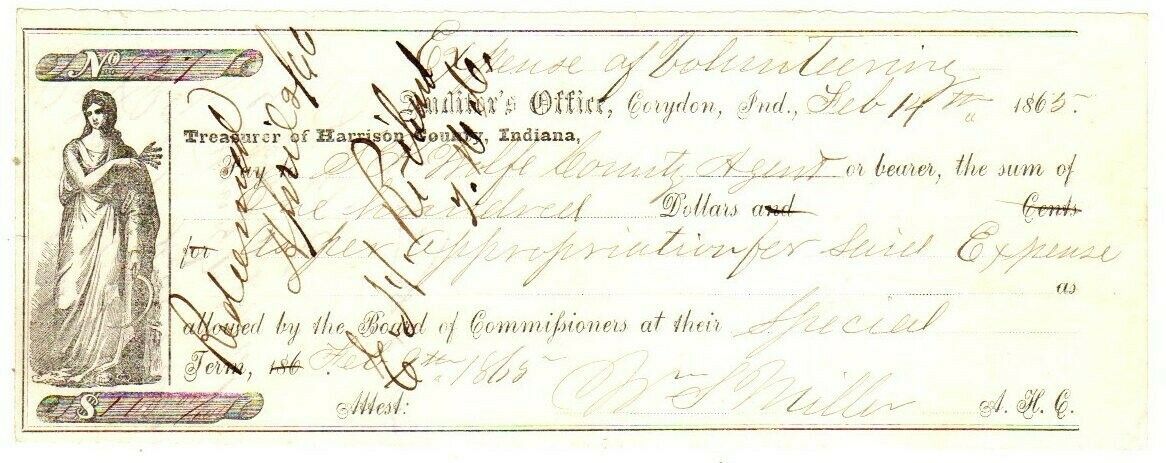 Expense of Volunteering
No
Auditor's Office, Corydon, Ind., Feb 14th 1865
Treasurer of Harrison County, Indiana,
Pay Wolfe County Agent or bearer, the sum of
One hundred Dollars and Cents
for as per appropriation for said Expense
as
allowed by the Board of Commissioners at their Special
Term, 186 Feb 9th 1865
Attest: Wm S Miller A. H. C.
$
Redeemed
April